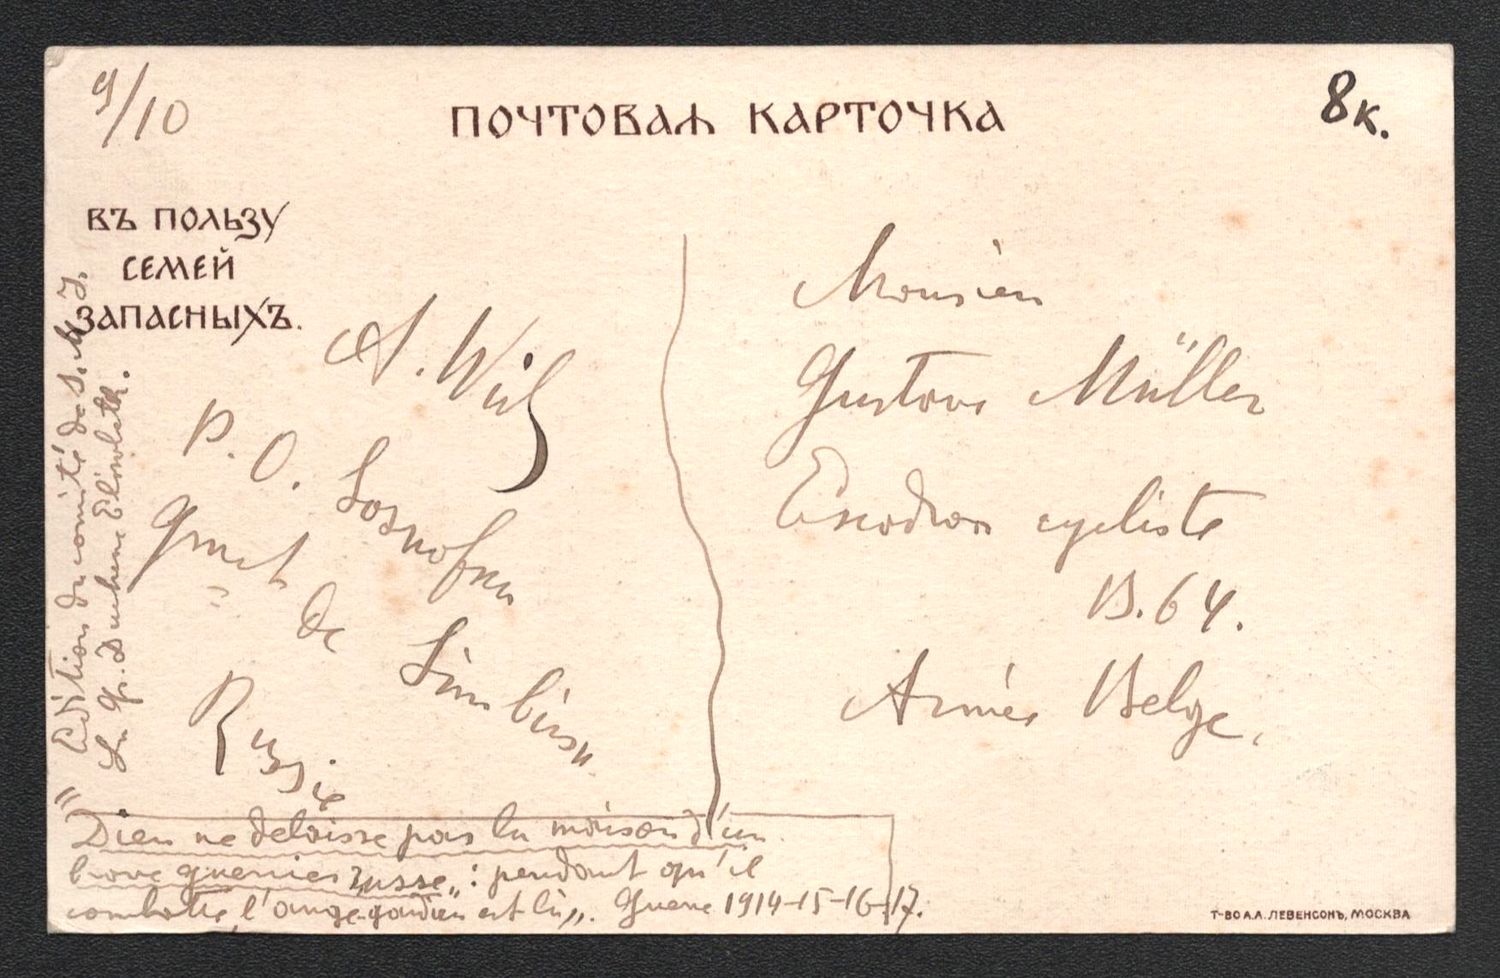 9/10
ПОЧТОВАЯ КАРТОЧКА
8к.
ВЪ ПОЛЬЗУ
СЕМЕЙ
ЗАПАСНЫХЪ.
A.
P. O. Sosnofka
Gouvt de Simbirsk
Russie
Edition du comité de S. M. I.
La Gr. Duchesse Elisabeth.
Monsieur
Gustave Müller
Escadron cycliste
B. 64.
Armée Belge.
"Dieu ne delaisse pas la maison d'un
brave guerrier russe„: pendant qu'il
combattre, l'ange-gardien est là„. Guerre 1914-15-16-17.
Т-ВО А.А. ЛЕВЕНСОНЪ, МОСКВА